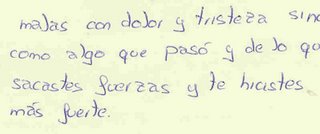 malas con dolor y tristeza sino
como algo que pasó y de lo que
sacastes fuerzas y te hicistes
más fuerte.